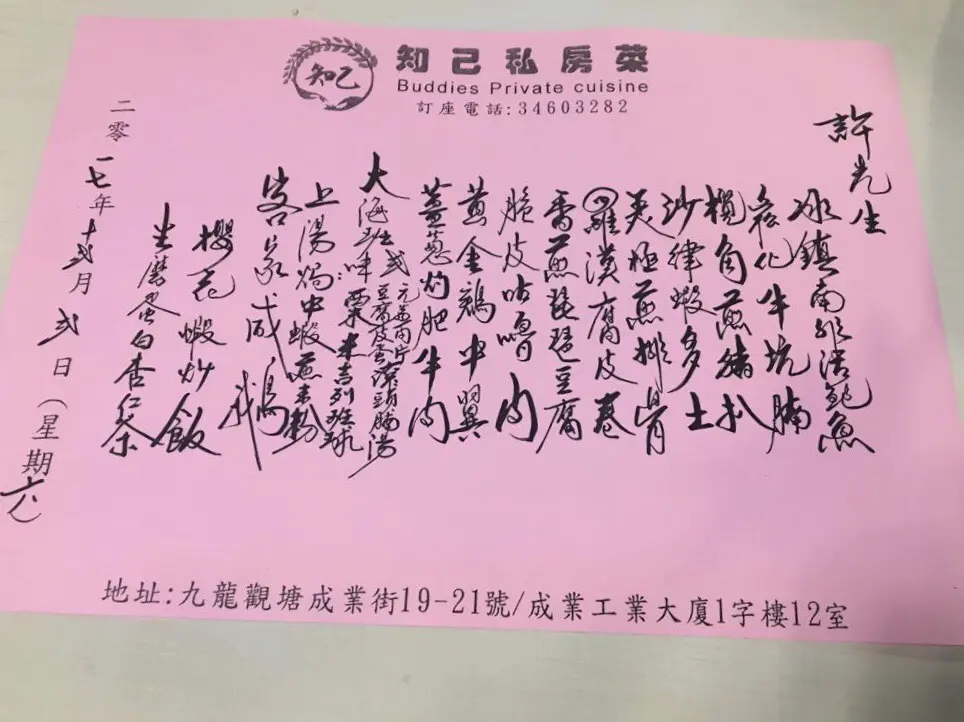 知己
知己私房菜
Buddies Private cuisine
訂座電話:34603282
許先生
冰鎮南非活鮑魚
牛坑腩
欖角煎豬扒
沙律蝦多士
美極煎排骨
羅漢腐皮卷
香煎琵琶豆腐
脆皮咕嚕肉
黃金鷄中翼
薑蔥灼肥牛肉
大海班弍味:
豆腐皮魚頭腩湯
粟米吉列班球
上湯焗中蝦
客家咸鷄
櫻花蝦炒飯
生磨蛋白杏仁茶
二零一七年十弍月弍日(星期六)
地址:九龍觀塘成業街19-21號/成業工業大廈1字樓12室